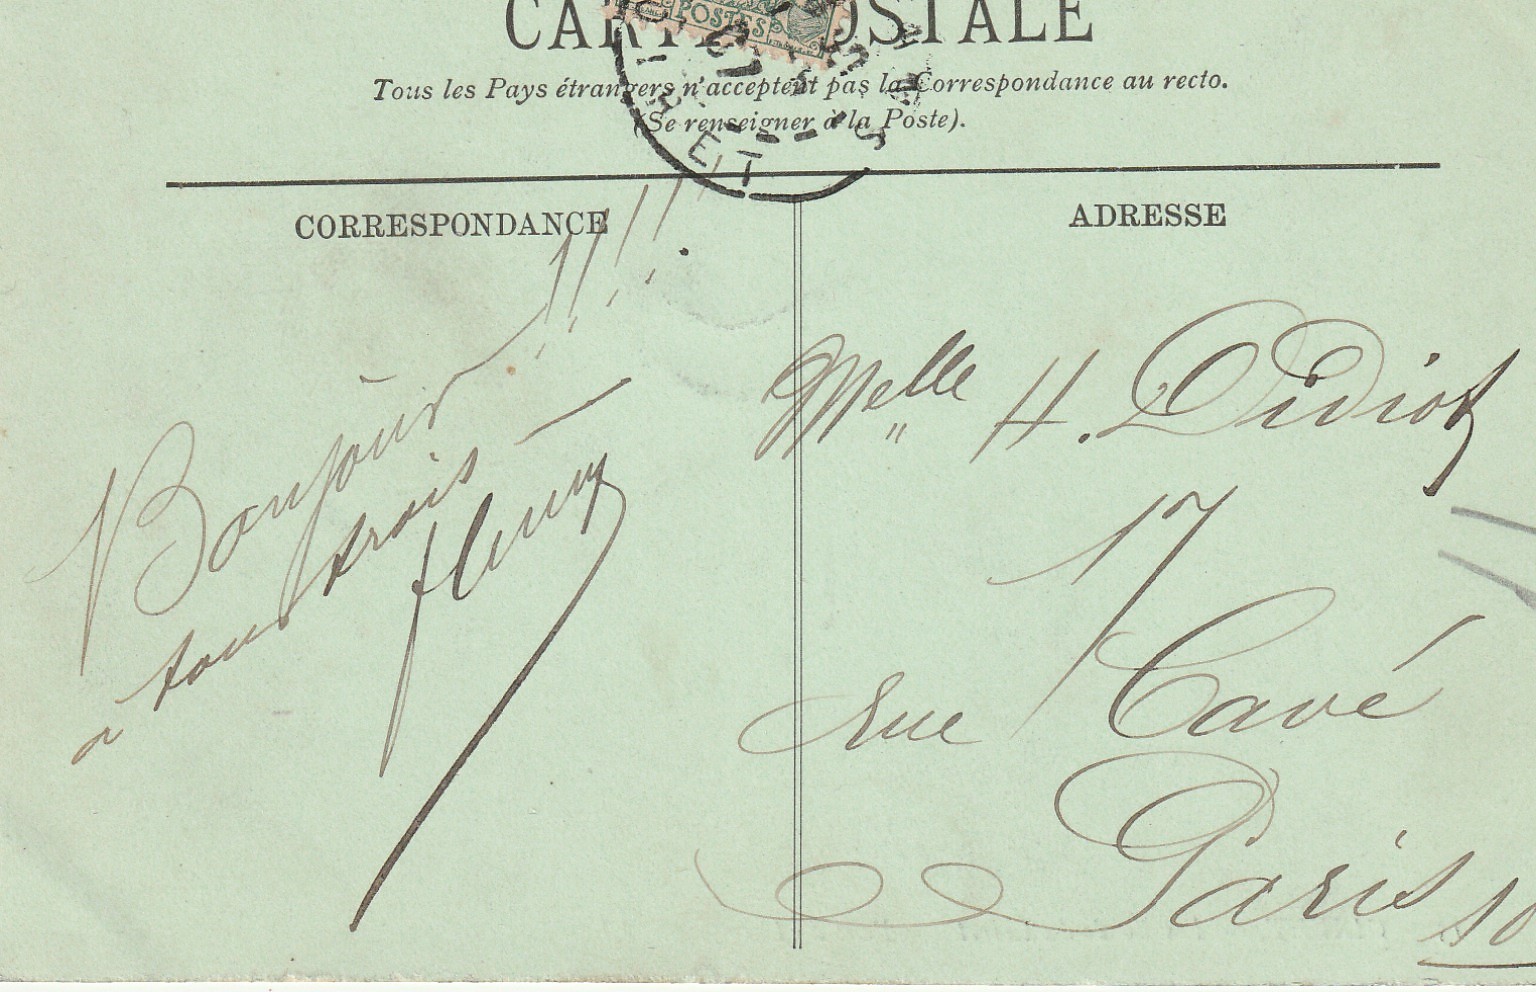 CARTE POSTALE
POSTES
Tous les Pays étrangers n'acceptent pas la Correspondance au recto.
(Se renseigner à la Poste).
CORRESPONDANCE
Bonjour !!!!
à tous trois
fleury
ADRESSE
Melle H. Didiot
17
rue Cavé
Paris